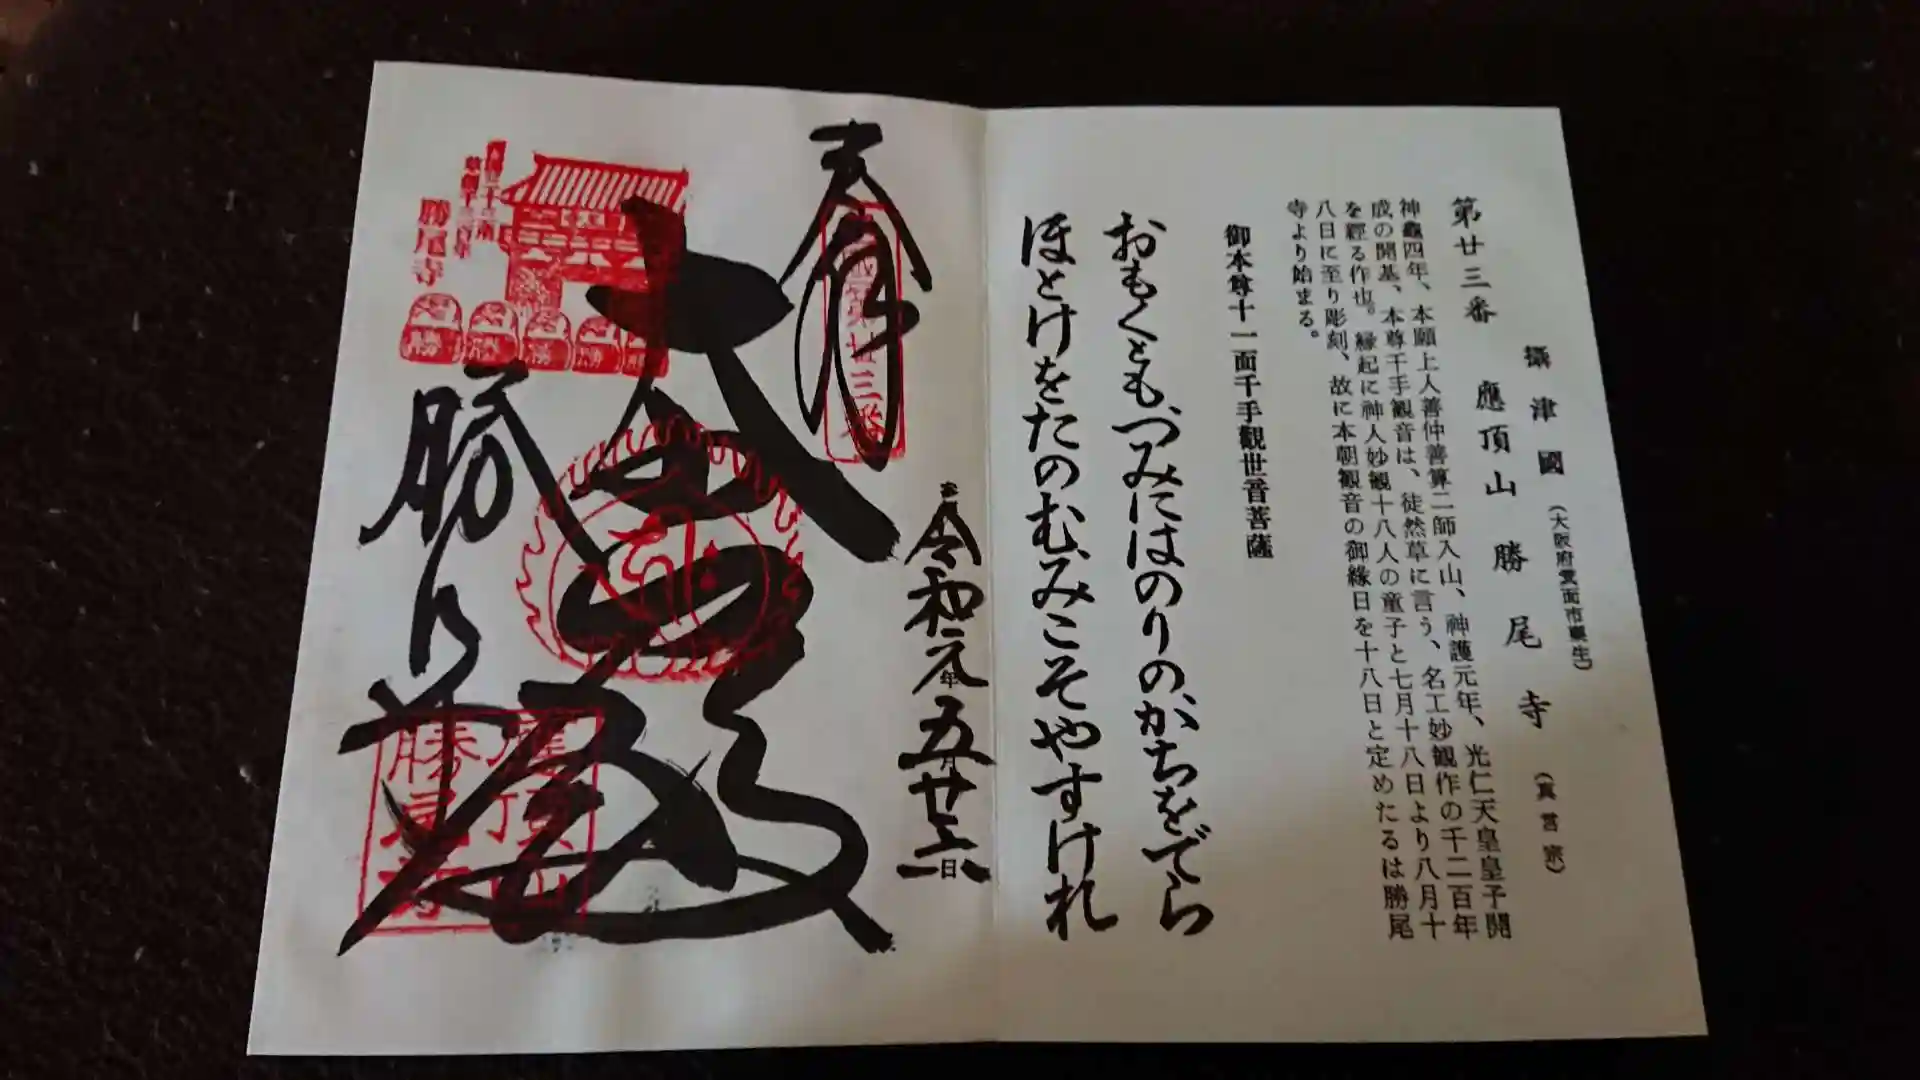 攝津國(大阪府箕面市粟生)
第廿三番 應頂山 勝尾寺(真言宗)
神龜四年、本願上人善仲善算二師入山、神護元年、光仁天皇皇子開
成の開基、本尊千手観音は、徒然草に言う、名工妙観作の千二百年
を經る作也。縁起に神人妙観十八人の童子と七月十八日より八月十
八日に至り彫刻、故に本朝観音の御緣日を十八日と定めたるは勝尾
寺より始まる。
御本尊十一面千手觀世音菩薩
おもくともつみにはのりのかちをでら
ほとけをたのむみこそやすけれ
令和元年五月廿六日
奉拝
大悲殿
勝尾寺
西國三十三所
草創千三百年
勝尾寺
應頂山
勝尾寺